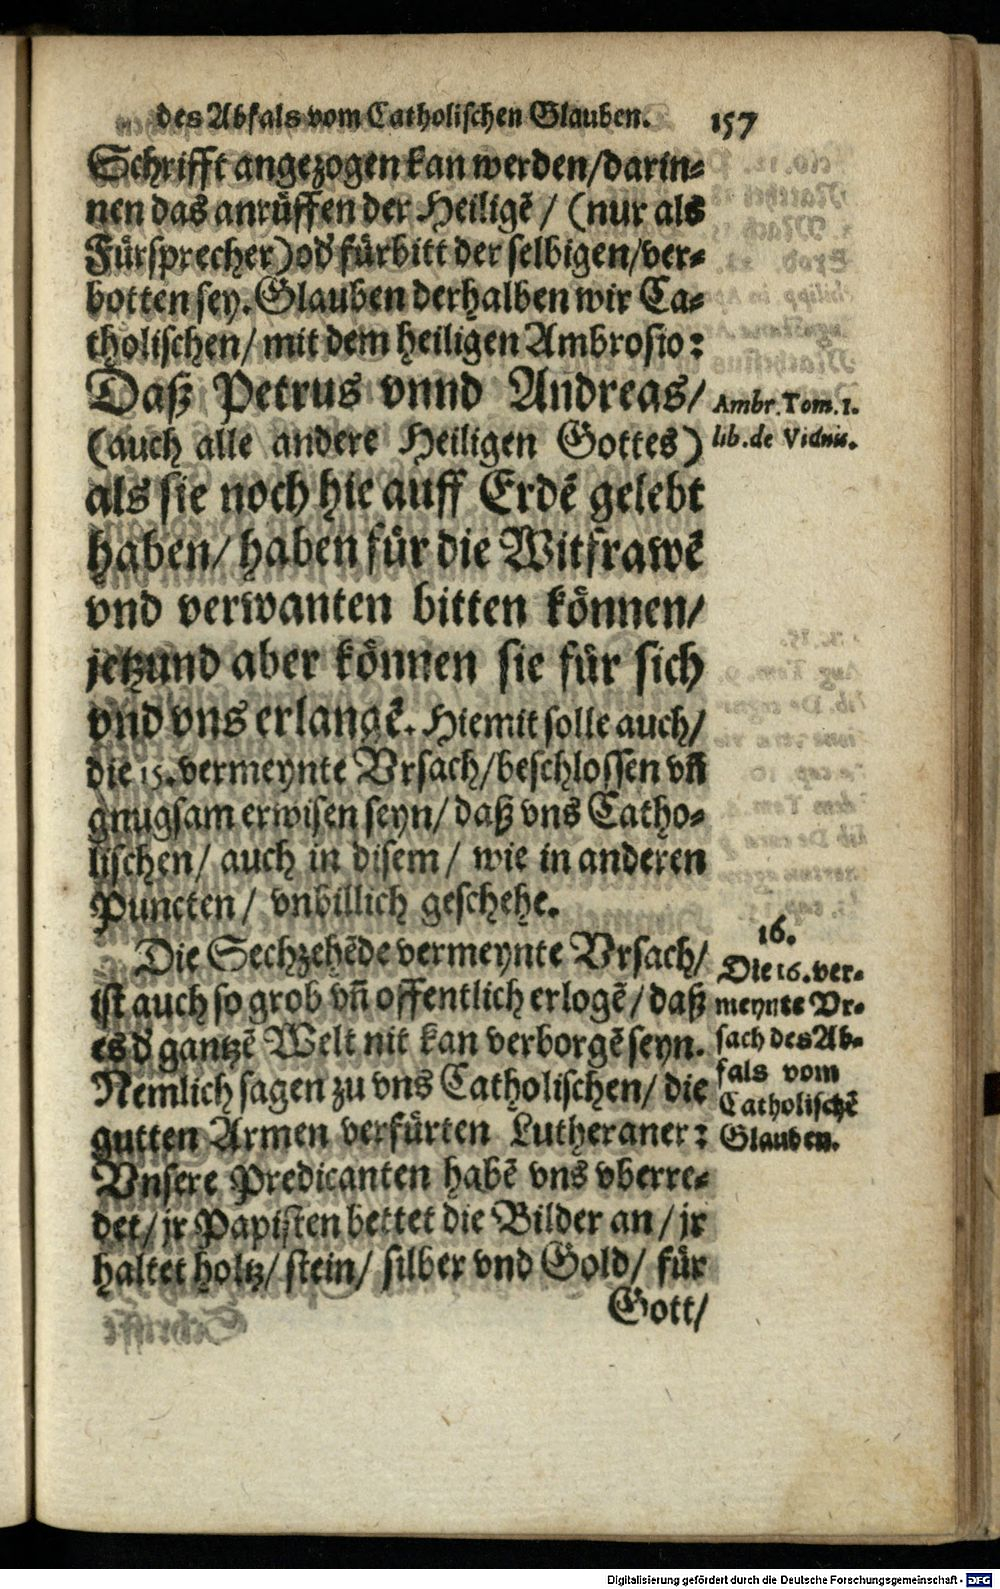 des Abfals vom Catholischen Glauben. 157
Schrifft angezogen kan werden/darin-
nen das anrüffen der Heiligē/ (nur als
Fürsprecher) od' fürbitt der selbigen/ver-
botten sey. Glauben derhalben wir Ca-
tholischen/ mit dem heiligen Ambrosio:
Daß Petrus vnnd Andreas/
(auch alle andere Heiligen Gottes)
als sie noch hie auff Erdē gelebt
haben/ haben für die Witfrawē
vnd verwanten bitten können/
jetzund aber können sie für sich
vnd vns erlangē. Hiemit solle auch/
die 15. vermeynte Vrsach/beschlossen vñ
gnugsam erwisen seyn/ daß vns Catho-
lischen/ auch in disem/ wie in anderen
Puncten/ vnbillich geschehe.
Die Sechzehēde vermeynte Vrsach/
ist auch so grob vñ offentlich erlogē/ daß
es d' gantzē Welt nit kan verborgē seyn.
Nemlich sagen zu vns Catholischen/ die
gutten Armen verfürten Lutheraner:
Vnsere Predicanten habē vns vberre-
det/ jr Papisten bettet die Bilder an/ jr
haltet holtz/ stein/ silber vnd Gold/ für
Gott/
Ambr. Tom. 1.
lib. de Viduis.
16.
Die 16. ver-
meynte Vr-
sach des Ab-
fals vom
Catholischē
Glauben.
Digitalisierung gefördert durch die Deutsche Forschungsgemeinschaft - DFG